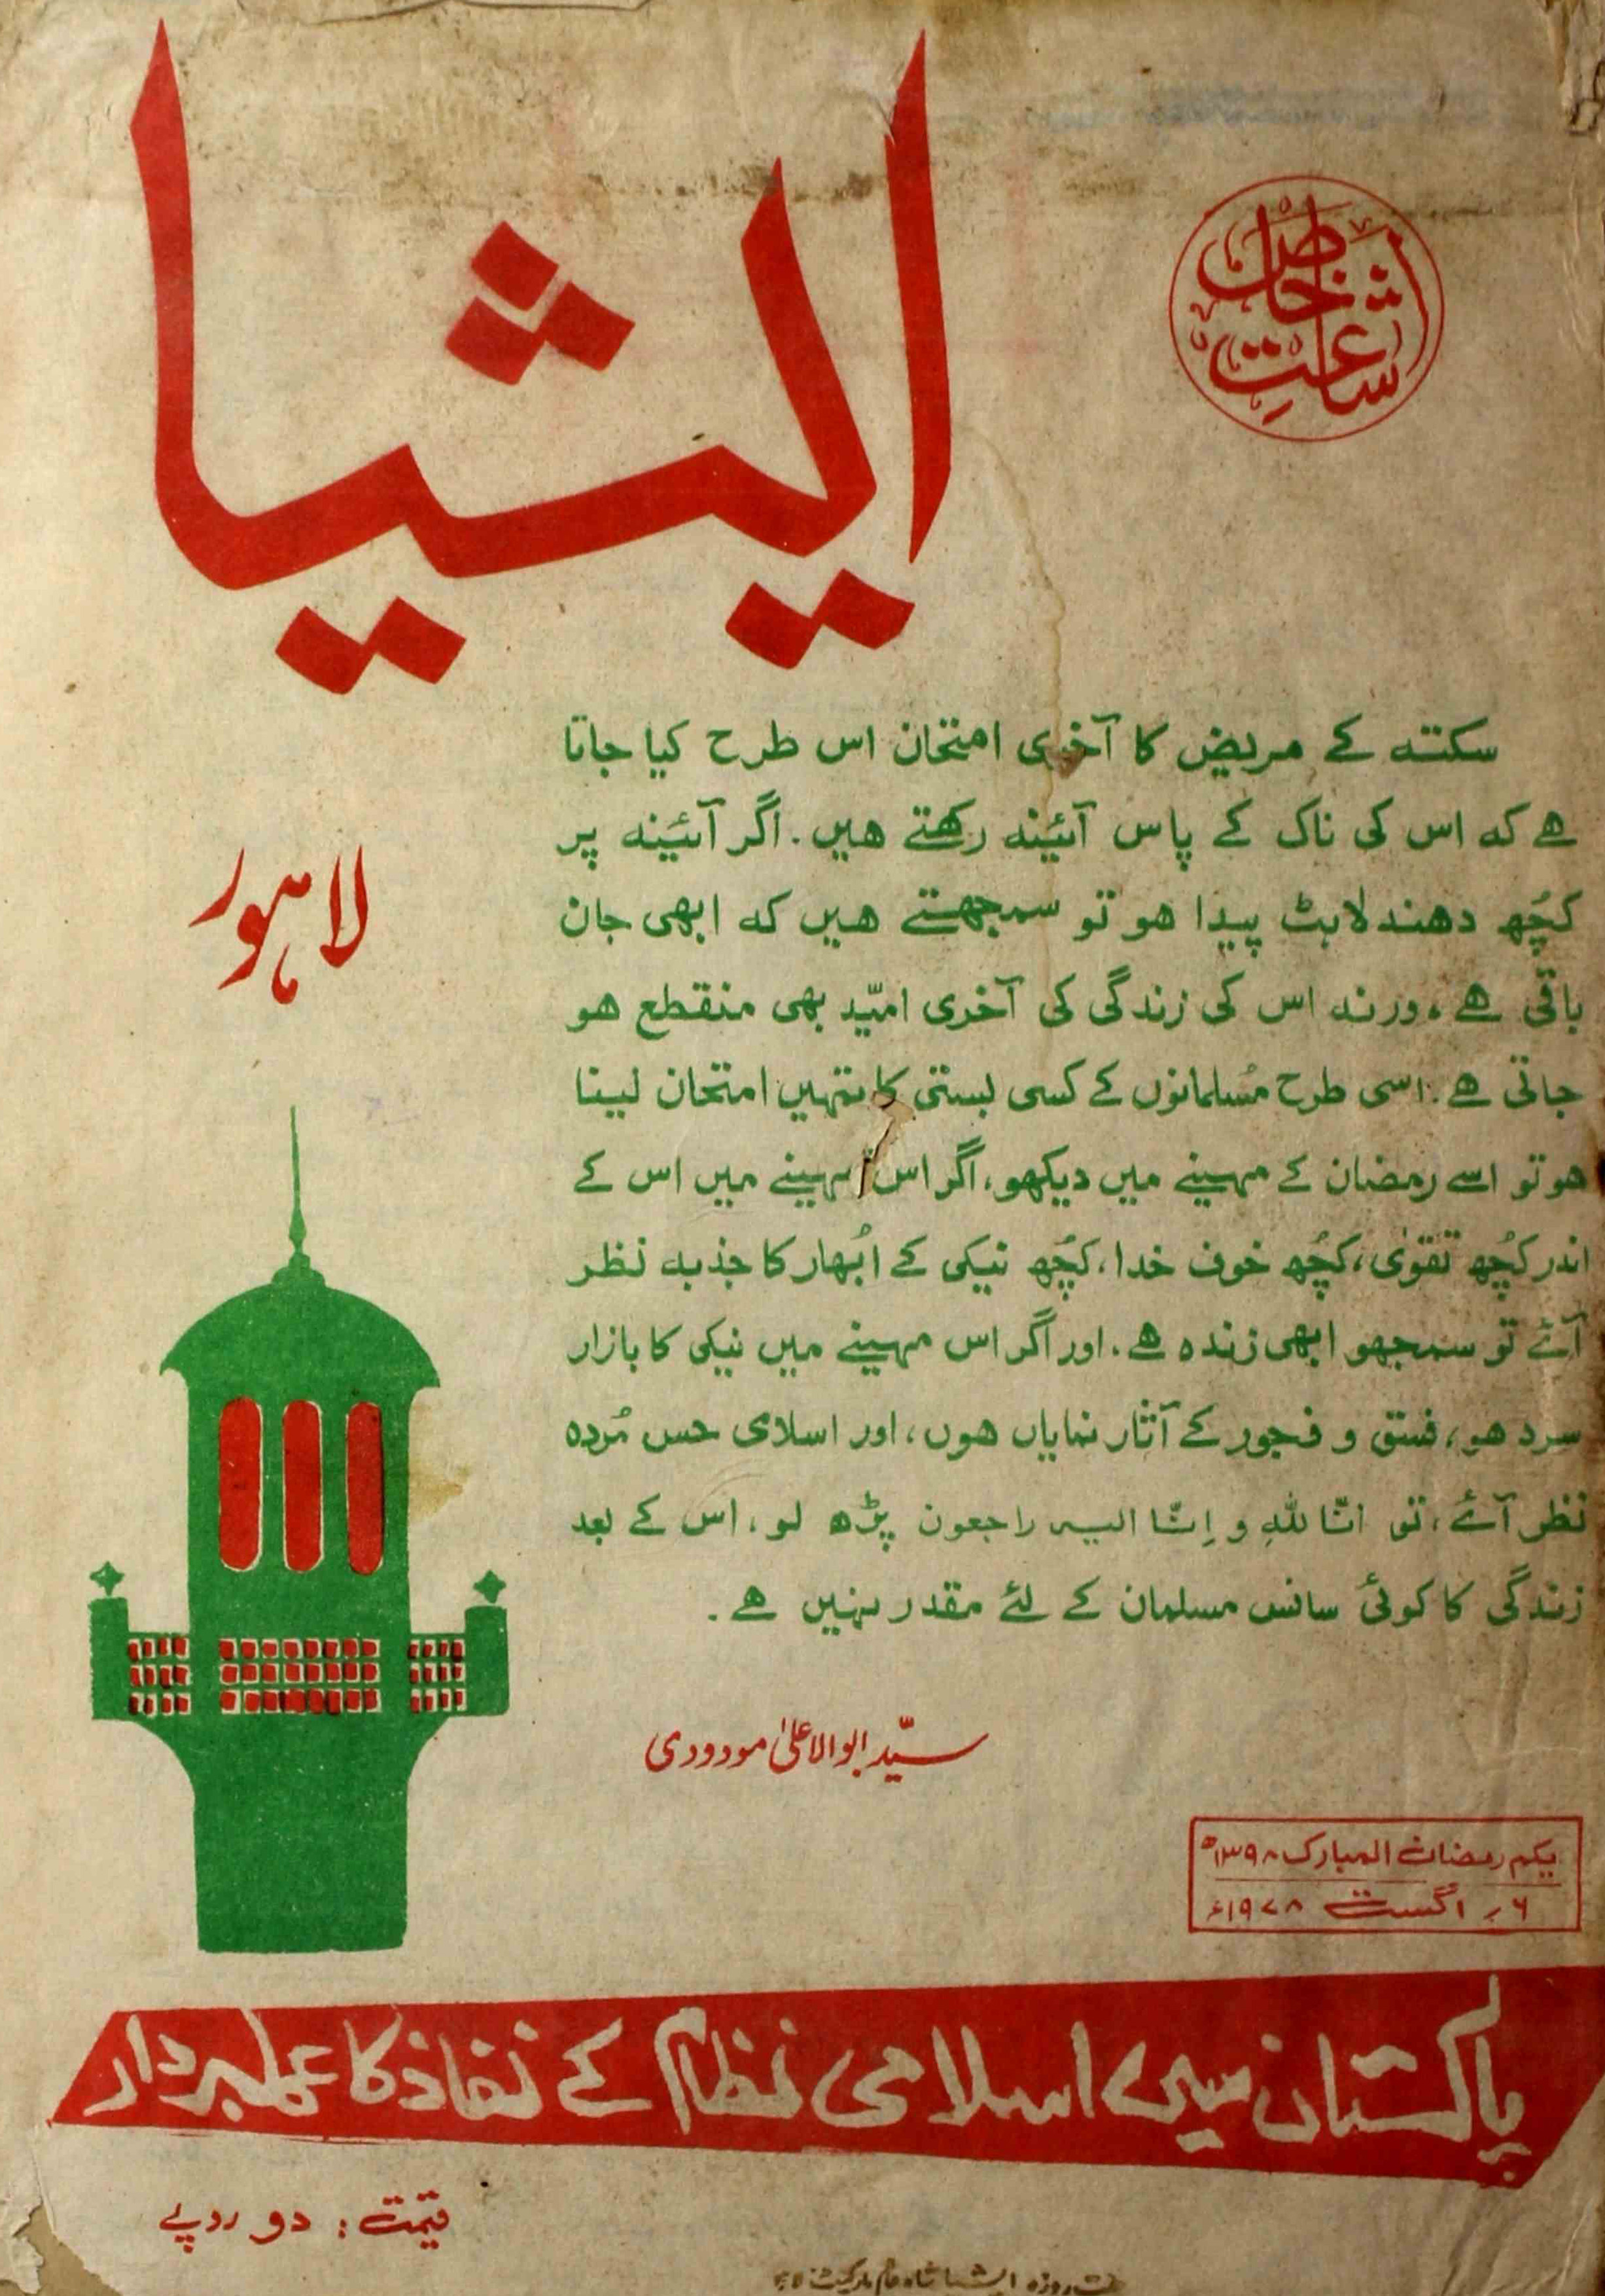 ایشیا
اشاعتِ خاص
لاہور
سکتہ کے مریض کا آخری امتحان اس طرح کیا جاتا
ہے کہ اس کی ناک کے پاس آئینہ رکھتے ہیں۔ اگر آئینہ پر
کچُھ دھندلاہٹ پیدا ہو تو سمجھتے ہیں کہ ابھی جان
باقی ہے، ورنہ اس کی زندگی کی آخری امیّد بھی منقطع ہو
جاتی ہے۔ اسی طرح مُسلمانوں کے کسی بستی کا تمہیں امتحان لینا
ہو تو اسے رمضان کے مہینے میں دیکھو، اگر اس مہینے میں اس کے
اندر کچُھ تقویٰ، کچُھ خوف خدا، کچُھ نیکی کے اُبھار کا جذبہ نظر
آئے تو سمجھو ابھی زندہ ہے۔ اور اگر اس مہینے میں نیکی کا بازار
سرد ہو، فسق و فجور کے آثار نمایاں ہوں، اور اسلامی حس مُردہ
نظر آئے، تو انّا للہِ و اِنّا الیہ راجعون پڑھ لو، اس کے بعد
زندگی کا کوئی سانس مسلمان کے لئے مقدر نہیں ہے۔
سیّد ابوالاعلیٰ مودودی
یکم رمضان المبارک ۱۳۹۸ھ
۶ر اگست ۱۹۷۸ء
پاکستان میں اسلامی نظام کے نفاذ کا علمبردار
قیمت: دو روپے
روزہ ایشیا شاہ عالم مارکیٹ لاہور